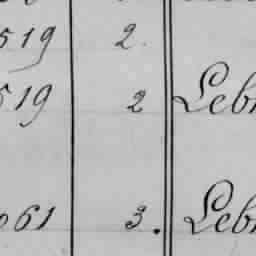 519 2.
519 2 Leb
061 3. Leb